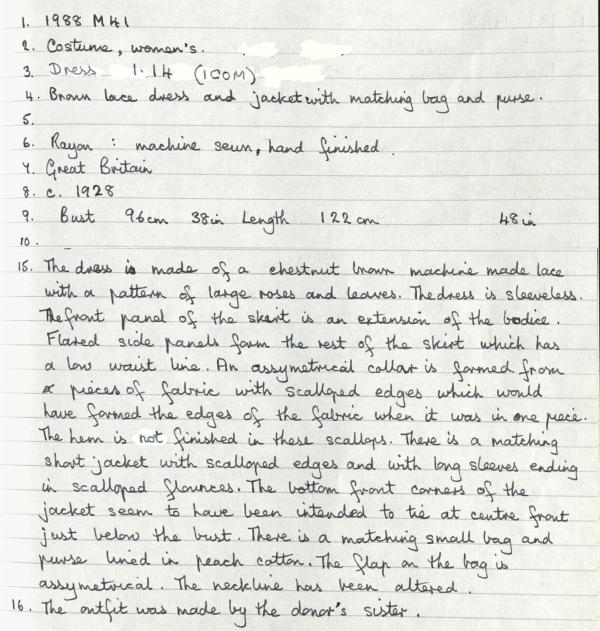 1. 1988 M41
2. Costume, women's.
3. Dress 1.14 (ICOM)
4. Brown lace dress and jacket with matching bag and purse.
5.
6. Rayon : machine sewn, hand finished.
7. Great Britain
8. c. 1928
9. Bust 96cm 38in Length 122cm 48in
10.
15. The dress is made of a chestnut brown machine made lace
with a pattern of large roses and leaves. The dress is sleeveless.
The front panel of the skirt is an extension of the bodice.
Flared side panels form the rest of the skirt which has
a low waist line. An assymetrical collar is formed from
pieces of fabric with scalloped edges which would
have formed the edges of the fabric when it was in one piece.
The hem is not finished in these scallops. There is a matching
short jacket with scalloped edges and with long sleeves ending
in scalloped flounces. The bottom front corners of the
jacket seem to have been intended to tie at centre front
just below the bust. There is a matching small bag and
purse lined in peach cotton. The flap on the bag is
assymetrical. The neckline has been altered.
16. The outfit was made by the donor's sister.